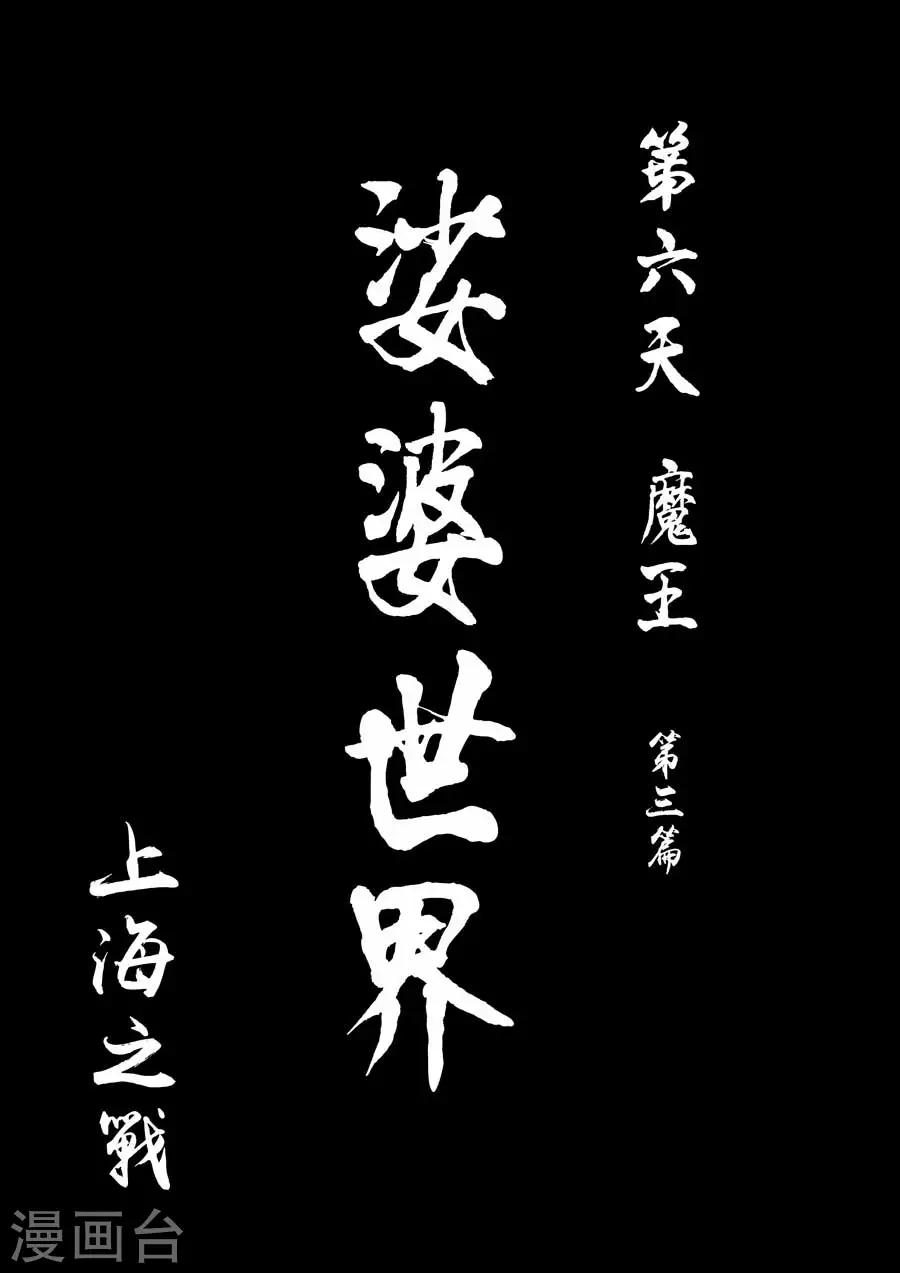 第六天 魔王 第三篇
娑婆世界
上海之戰
漫画台